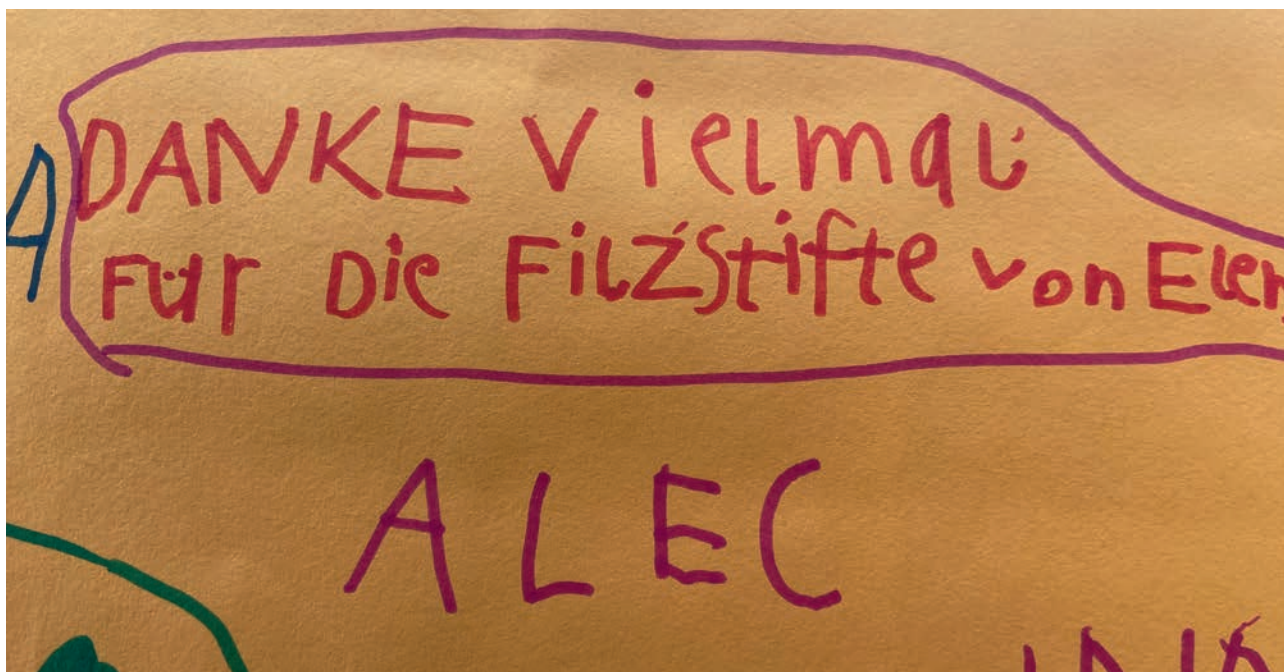 A
DANKE vielmal
Für Die Filzstifte von Elen
ALEC